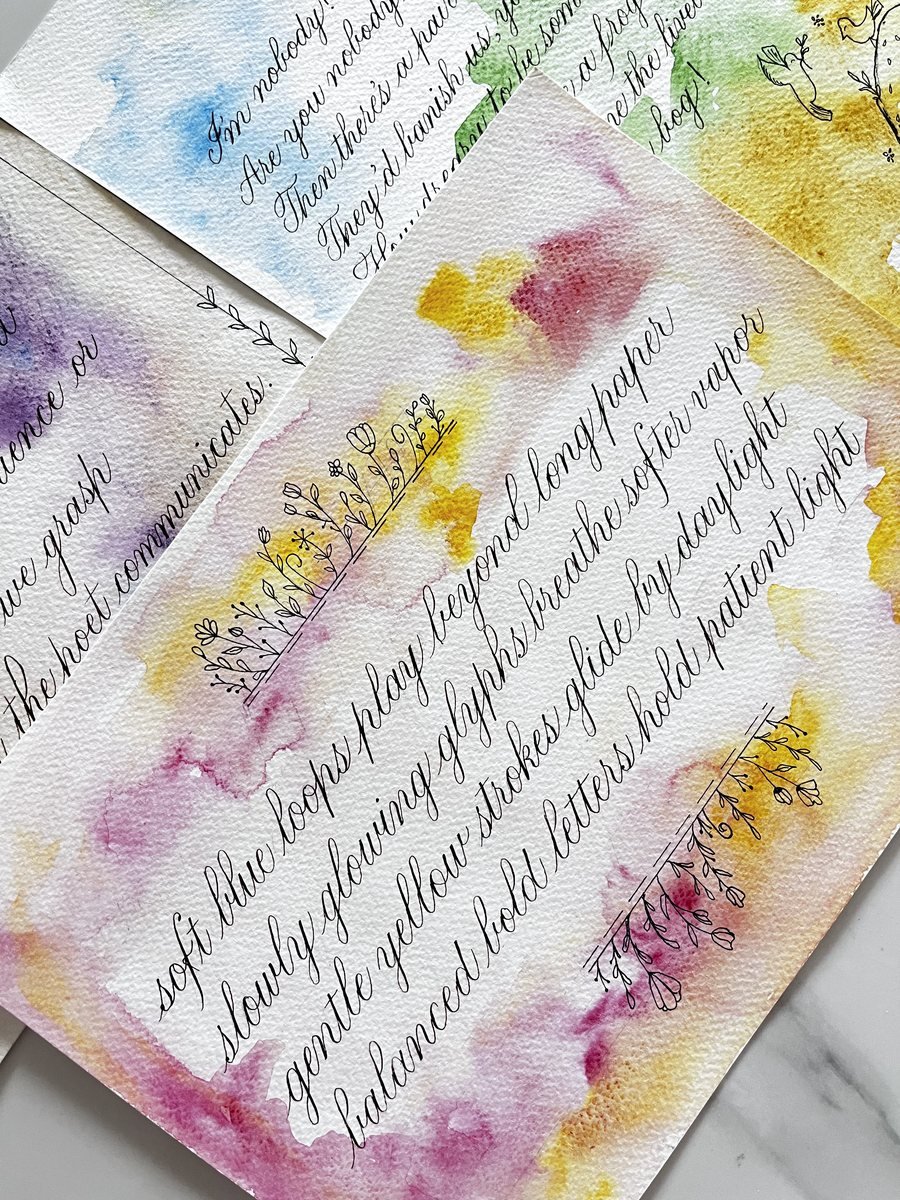 I'm nobody!
Are you nobody
Then there's a pair
They'd banish us, yo
to be som
a frog
the livel
bog!
or
we grasp
the poet communicates.
soft blue loops play beyond long paper
slowly glowing glyphs breathe softer vapor
gentle yellow strokes glide by daylight
balanced bold letters hold patient light